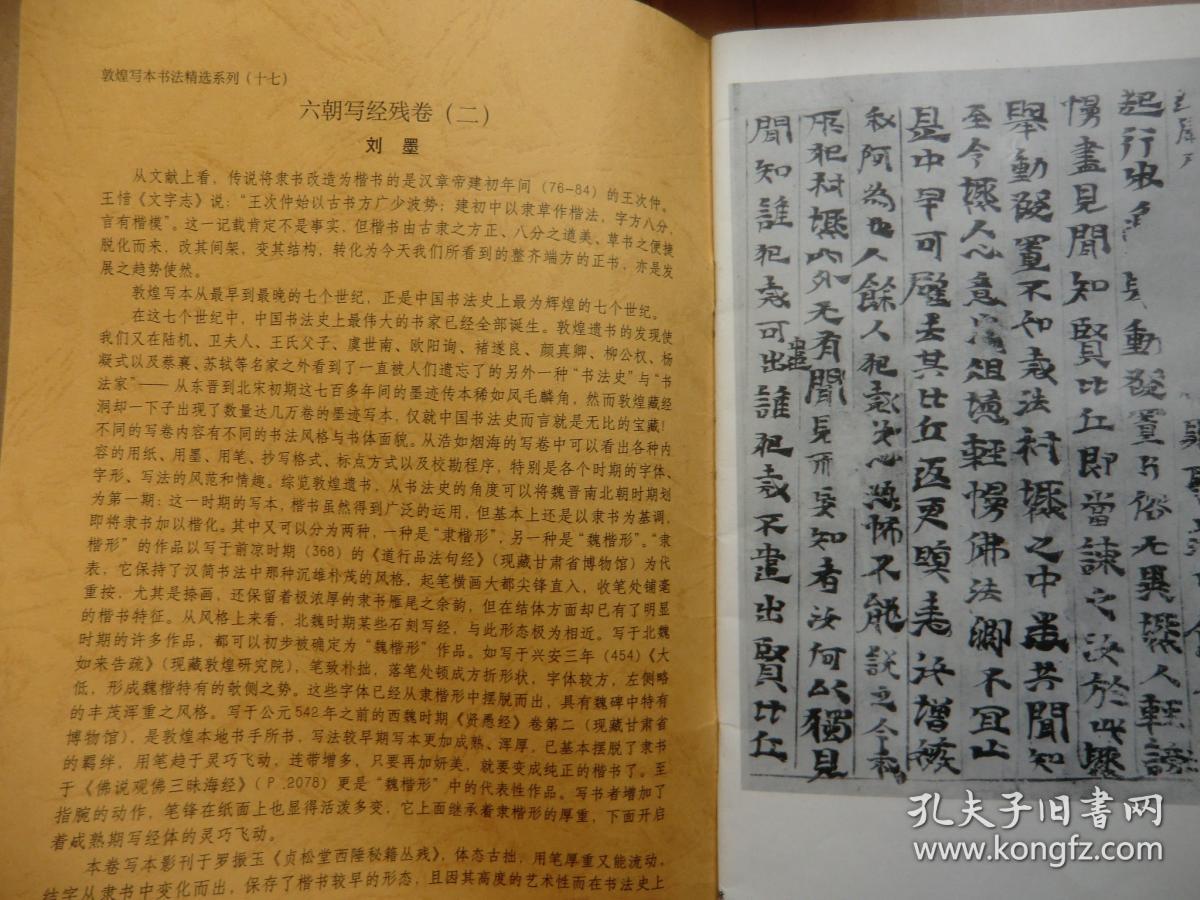 敦煌写本书法精选系列(十七)
六朝写经残卷(二)
刘 墨
从文献上看，传说将隶书改造为楷书的是汉章帝建初年间(76-84)的王次仲。
王愔《文字志》说："王次仲始以古书方广少波势；建初中以隶草作楷法，字方八分，
言有楷模"。这一记载肯定不是事实，但楷书由古隶之方正、八分之遒美、草书之便捷
脱化而来，改其间架，变其结构，转化为今天我们所看到的整齐端方的正书，亦是发
展之趋势使然。
敦煌写本从最早到最晚的七个世纪，正是中国书法史上最为辉煌的七个世纪。
在这七个世纪中，中国书法史上最伟大的书家已经全部诞生。敦煌遗书的发现使
我们又在陆机、卫夫人、王氏父子、虞世南、欧阳询、褚遂良、颜真卿、柳公权、杨
凝式以及蔡襄、苏轼等名家之外看到了一直被人们遗忘了的另外一种"书法史"与"书
法家"——从东晋到北宋初期这七百多年间的墨迹传本稀如凤毛麟角，然而敦煌藏经
洞却一下子出现了数量达几万卷的墨迹写本，仅就中国书法史而言就是无比的宝藏!
不同的写卷内容有不同的书法风格与书体面貌。从浩如烟海的写卷中可以看出各种内
容的用纸、用墨、用笔、抄写格式、标点方式以及校勘程序，特别是各个时期的字体、
字形、写法的风范和情趣。综览敦煌遗书，从书法史的角度可以将魏晋南北朝时期划
为第一期：这一时期的写本，楷书虽然得到广泛的运用，但基本上还是以隶书为基调，
即将隶书加以楷化。其中又可以分为两种，一种是"隶楷形"，另一种是"魏楷形"。"隶
楷形"的作品以写于前凉时期(368)的《道行品法句经》(现藏甘肃省博物馆)为代
表，它保持了汉简书法中那种沉雄朴茂的风格，起笔横画大都尖锋直入，收笔处铺毫
重按，尤其是捺画，还保留着极浓厚的隶书雁尾之余韵，但在结体方面却已有了明显
的楷书特征。从风格上来看，北魏时期某些石刻写经，与此形态极为相近。写于北魏
时期的许多作品，都可以初步被确定为"魏楷形"作品。如写于兴安三年(454)《大
如来告疏》(现藏敦煌研究院)，笔致朴拙，落笔处顿成方折形状，字体较方，左侧略
低，形成魏楷特有的欹侧之势。这些字体已经从隶楷形中摆脱而出，具有魏碑中特有
的丰茂浑重之风格。写于公元542年之前的西魏时期《贤愚经》卷第二(现藏甘肃省
博物馆)，是敦煌本地书手所书，写法较早期写本更加成熟、浑厚，已基本摆脱了隶书
的羁绊，用笔趋于灵巧飞动，连带增多，只要再加妍美，就要变成纯正的楷书了。至
于《佛说观佛三昧海经》(P.2078)更是"魏楷形"中的代表性作品。写书者增加了
指腕的动作，笔锋在纸面上也显得活泼多变，它上面继承着隶楷形的厚重，下面开启
着成熟期写经体的灵巧飞动。
本卷写本影刊于罗振玉《贞松堂西陲秘籍丛残》，体态古拙，用笔厚重又能流动，
结字从隶书中变化而出，保存了楷书较早的形态，且因其高度的艺术性而在书法史上
動發置与俗无異壞人輕謗
慢盡見聞知賢比丘即當諫之汝於此壞
舉動發置不如戒法村壞之中盡共聞知
至今壞人心意 俎壞輕慢佛法 不宜止
是中早可 去其比丘返更瞋恚 增
我何為 人餘人犯戒 心 怖不能說之今
所犯村壞此外无有聞見所妄知者汝何以獨見
聞知誰犯戒可出誰犯戒不遣出賢比丘
遣
孔夫子旧书网
www.kongfz.com